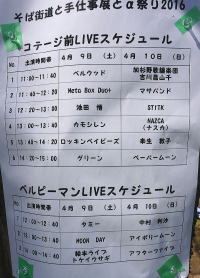 そば街道と手仕事展とα祭り2016
コテージ前LIVEスケジュール
No 出演時間帯 4月 9日 (土) 4月 10日 (日)
1 11:00~11:40 ベルウッド 加杉野敷舗楽団 吉川畠山千
2 11:40~12:20 Meta Box Duo+ マサバンド
3 12:20~13:00 池田 悟 STJTK
4 13:00~13:40 カモシレン NAZCA (ナスカ)
5 13:40~14:20 ロッキンベイビーズ 幸生 敦子
6 14:20~15:00 グリーン ペーパームーン
ベルピーマンLIVEスケジュール
出演時間帯 4月 9日 (土) 4月 10日 (日)
12:00~12:40 タミー 中村 利沙
MOON DAY アイボリームーン
アフターファイブ